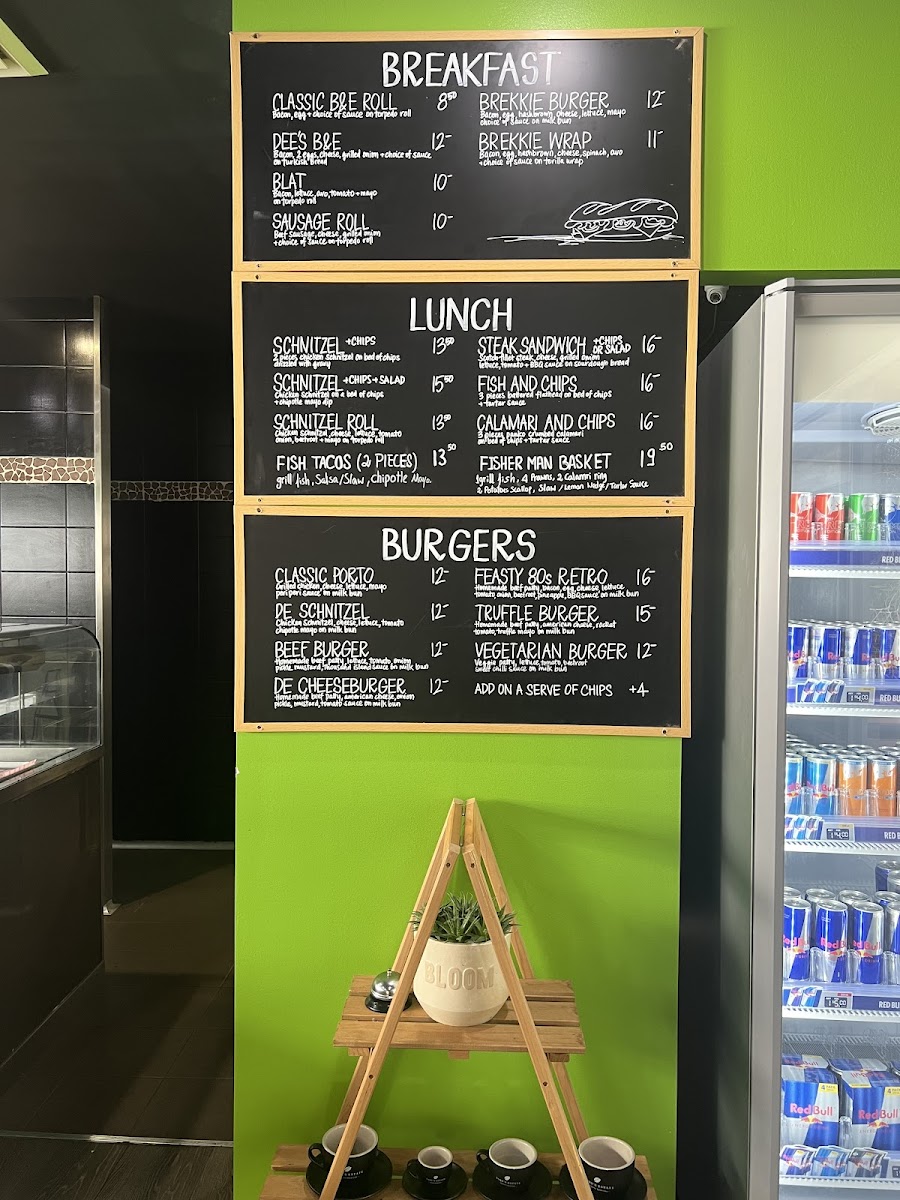 BREAKFAST
CLASSIC B&E ROLL 8⁵⁰
Bacon, egg + choice of sauce on torpedo roll
DEE'S B&E 12-
Bacon, 2 eggs, cheese, grilled onion + choice of sauce
on turkish bread
BLAT 10-
Bacon, lettuce, avo, tomato + mayo
on torpedo roll
SAUSAGE ROLL 10-
Beef sausage, cheese, grilled onion
+ choice of sauce on torpedo roll
BREKKIE BURGER 12-
Bacon, egg, hashbrown, cheese, lettuce, mayo
choice of sauce on milk bun
BREKKIE WRAP 11-
Bacon, egg, hashbrown, cheese, spinach, avo
+ choice of sauce on torilla wrap
LUNCH
SCHNITZEL +CHIPS 13⁵⁰
2 pieces chicken schnitzel on bed of chips
drizzled with gravy
SCHNITZEL +CHIPS+SALAD 15⁵⁰
Chicken schnitzel on a bed of chips
+ chipotle mayo dip
SCHNITZEL ROLL 13⁵⁰
Chicken schnitzel, cheese, lettuce, tomato
onion, beetroot + mayo on torpedo roll
FISH TACOS (2 PIECES) 13⁵⁰
grill fish, Salsa/Slaw, Chipotle Mayo.
STEAK SANDWICH +CHIPS OR SALAD 16-
Scotch fillet steak, cheese, grilled onion
lettuce, tomato + BBQ sauce on sourdough bread
FISH AND CHIPS 16-
3 pieces battered flathead on bed of chips
+ tartar sauce
CALAMARI AND CHIPS 16-
3 pieces panko crumbed calamari
on bed of chips + tartar sauce
FISHER MAN BASKET 19⁵⁰
1grill fish, 4 Prawns, 2 Calamri ring
2 Potatoes Scallop, Slaw / Lemon Wedge/Tartar Sauce
BURGERS
CLASSIC PORTO 12-
Grilled chicken, cheese, lettuce, mayo
peri peri sauce on milk bun
DE SCHNITZEL 12-
Chicken schnitzel, cheese, lettuce, tomato
chipotle mayo on milk bun
BEEF BURGER 12-
Homemade beef patty, lettuce, tomato, onion
pickle, mustard, thousand island sauce on milk bun
DE CHEESEBURGER 12-
Homemade beef patty, american cheese, onion
pickle, mustard, tomato sauce on milk bun
FEASTY 80s RETRO 16-
Homemade beef patty, bacon, egg, cheese, lettuce
tomato, onion, beetroot, pineapple, BBQ sauce on milk bun
TRUFFLE BURGER 15-
Homemade beef patty, american cheese, rocket
tomato, truffle mayo on milk bun
VEGETARIAN BURGER 12-
Veggie patty, lettuce, tomato, beetroot
sweet chilli sauce on milk bun
ADD ON A SERVE OF CHIPS +4
BLOOM
RED B
RED BU
RED BU
RED BU
RedBull
RedBull
RedBull
RedBull